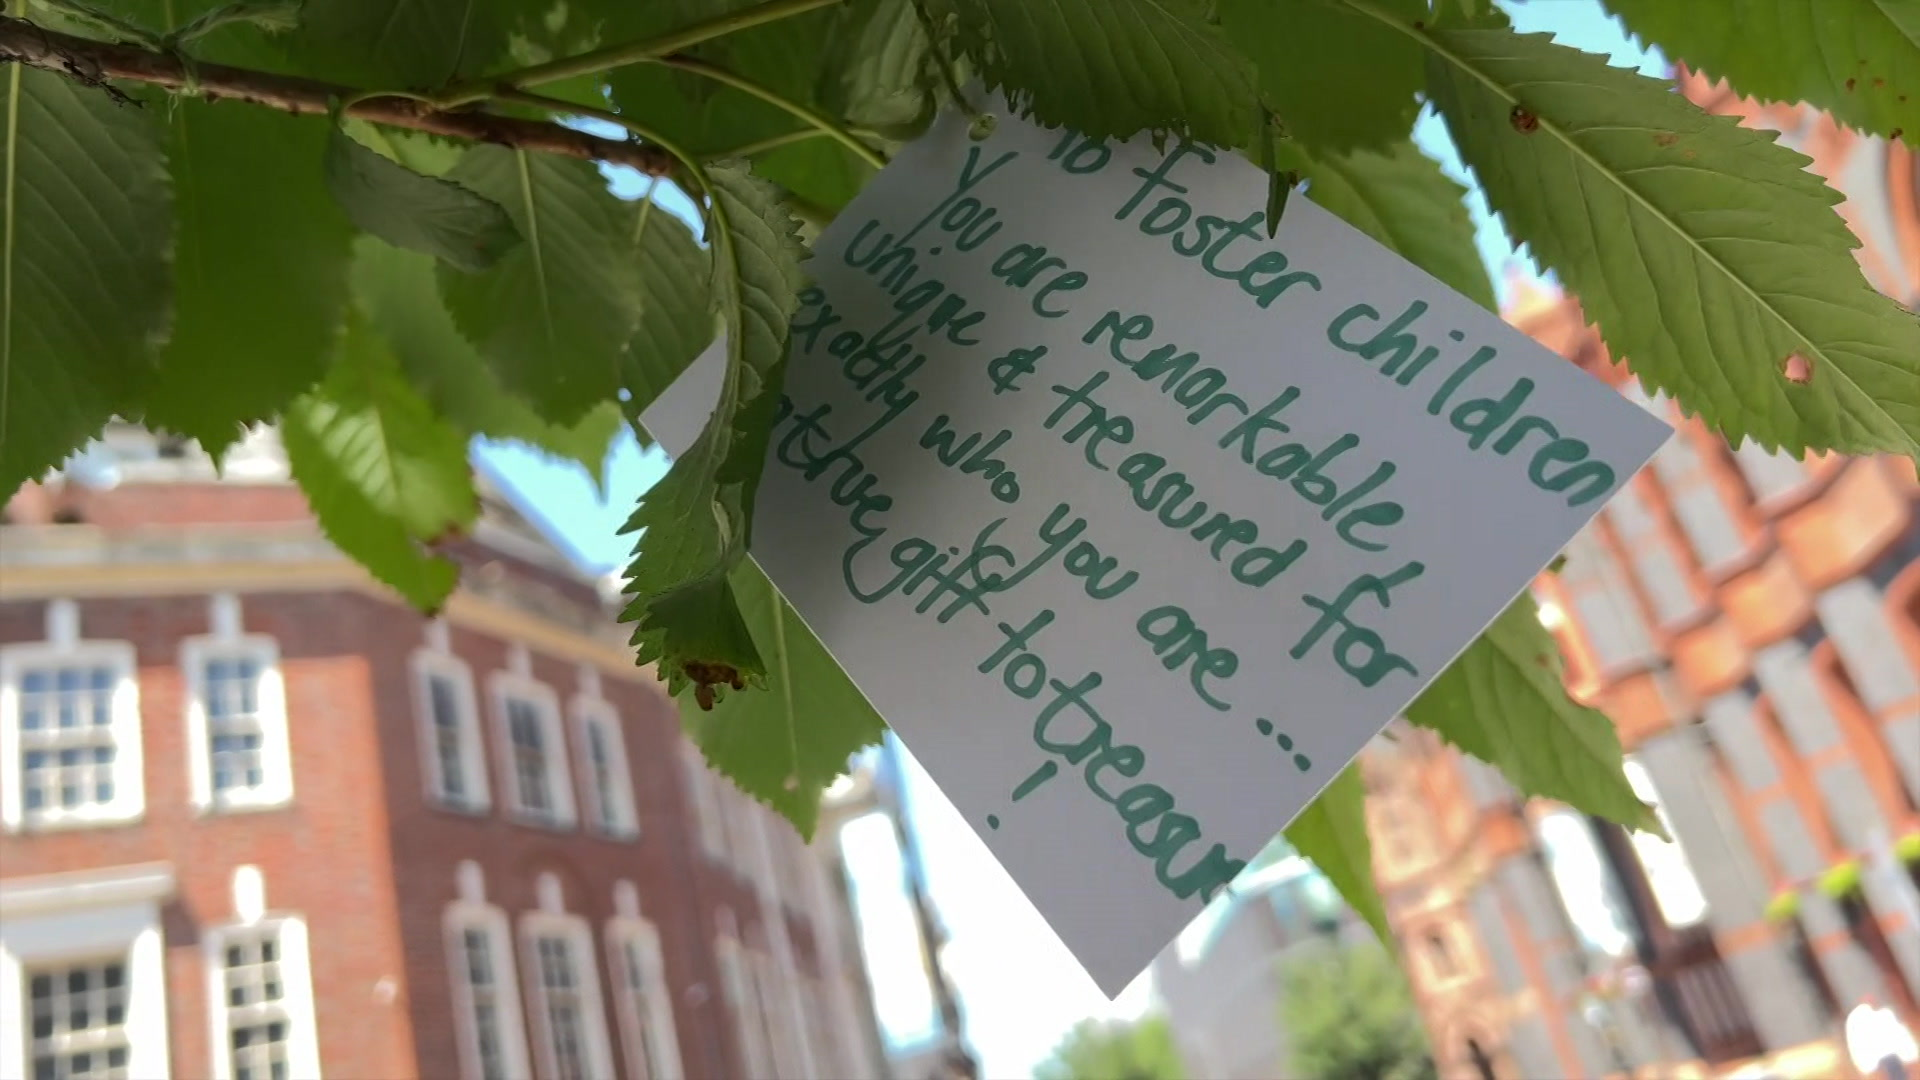 To foster children
You are remarkable,
unique & treasured for
exactly who you are ...
a true gift to treasure
!